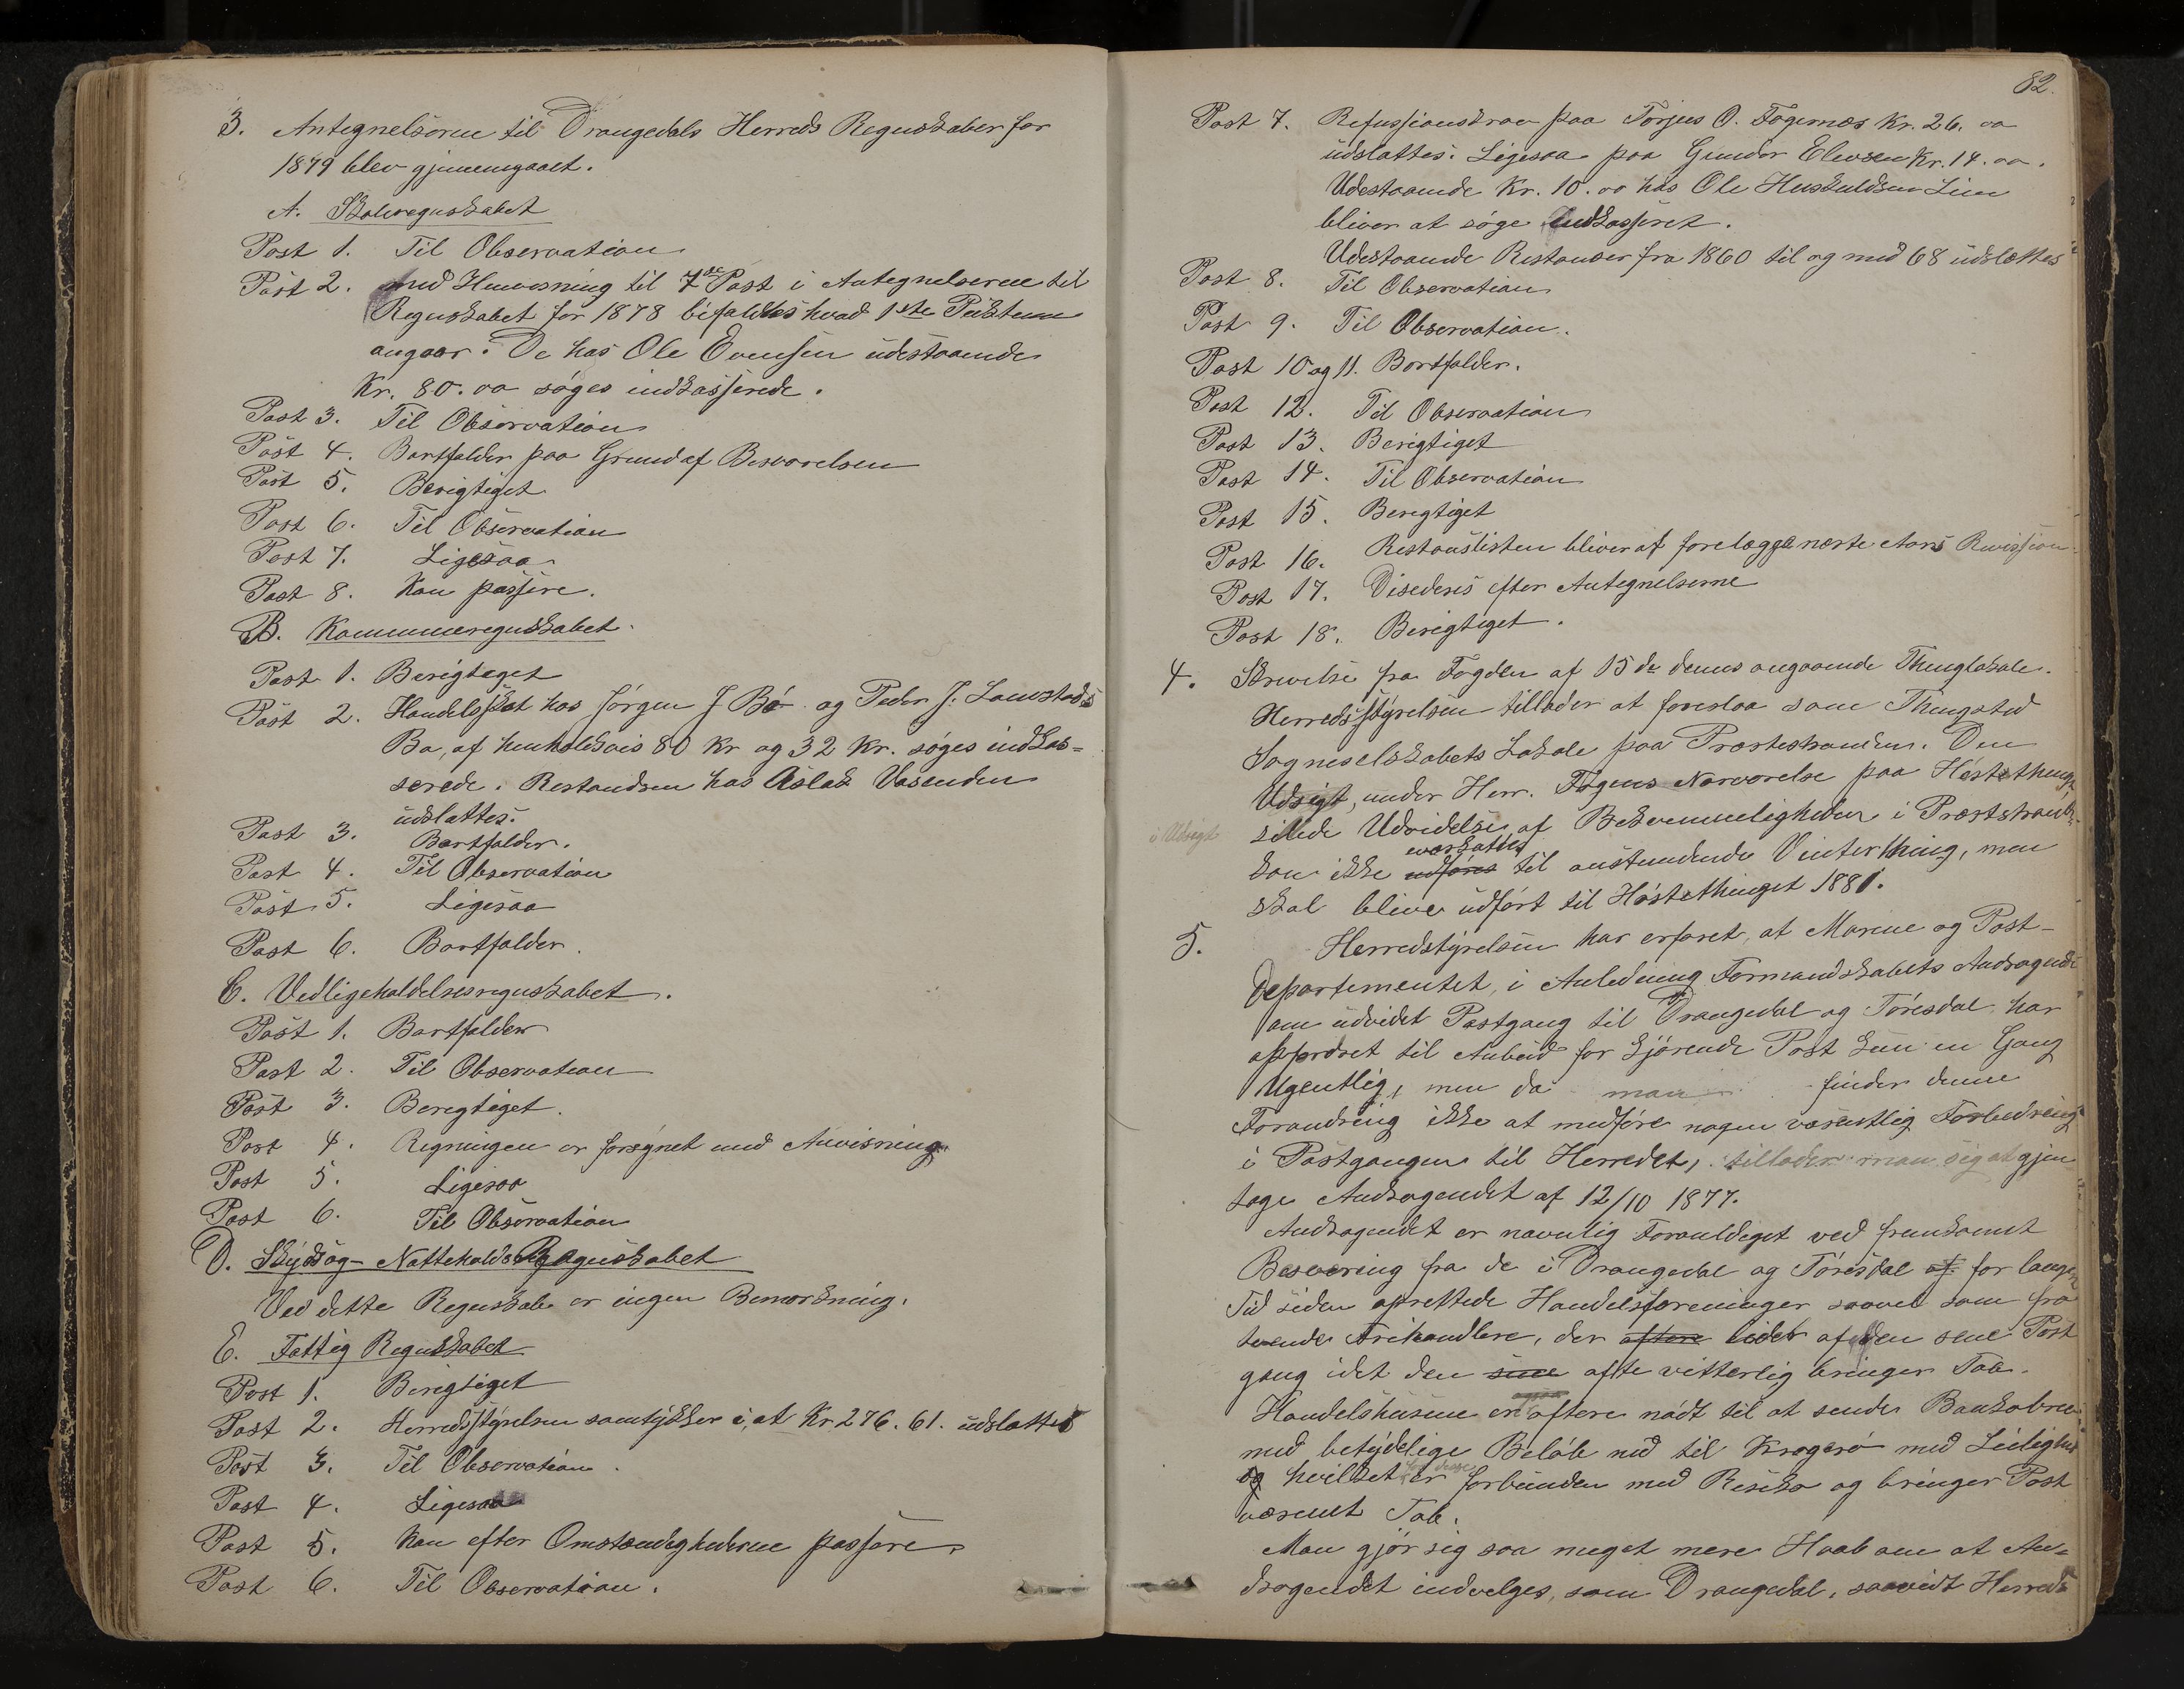 3. Antegnelserne til Drangedals Herreds Regnskaber for
1879 blev gjennemgaaet.
A. Skoleregnskabet
Post 1. Til Observation
Post 2. med Henvisning til 7de Post i Antegnelserne til
Regnskabet for 1878 bifaldtes hvad 1ste Punktum
angaar. De hos Ole Evensen udestaaende
Kr. 80.00 søges indkasserede.
Post 3. Til Observation
Post 4. Bortfalder paa Grund af Besvarelsen
Post 5. Berigtiget
Post 6. Til Observation
Post 7. Ligesaa
Post 8. Kan passere.
B. Kommuneregnskabet.
Post 1. Berigtiget
Post 2. Handelsskat hos Jørgen J Bø og Peder J.
Bø, af henholdsvis 80 Kr og 32 Kr. søges indkas=
serede. Restandsen hos Aslak Vasenden
udslattes.
Post 3. Bortfalder.
Post 4. Til Observation
Post 5. Ligesaa
Post 6. Bortfalder.
C. Vedligeholdelsesregnskabet.
Post 1. Bortfalder
Post 2. Til Observation
Post 3. Beregtiget.
Post 4. Regningen er forsynet med Anvisning
Post 5. Ligesaa
Post 6. Til Observation
D. Skyds og Natteholds Regnskabet
Ved dette Regnskab er ingen Bemærkning.
E. Fattig Regnskabet
Post 1. Berigtiget
Post 2. Herredsstyrelsen samtykker i, at Kr. 276.61. udslattes
Post 3. Til Observation.
Post 4. Ligesaa
Post 5. Kan efter Omstændighederne passere.
Post 6. Til Observation.
82.
Post 7. Refusionskrav paa Torjus O. Fogernæs Kr. 26.00
udslattes. Ligesaa paa Gunder Elevsen Kr. 14.00.
Udestaaende Kr. 10.00 hos Ole Huskuldsen Lien
bliver at søge indkasseret.
Udestaaende Restancer fra 1860 til og med 68 udslettes
Post 8. Til Observation
Post 9. Til Observation.
Post 10 og 11. Bortfalder.
Post 12. Til Observation
Post 13. Berigtiget
Post 14. Til Observation
Post 15. Beregtiget
Post 16. Restanslisten bliver at forelægge næste Aars Revission.
Post 17. Desideres efter Antegnelserne
Post 18. Berigtiget.
4. Skrivelse fra Fogden af 15de dennes angaaende Thinglokale.
Herredsstyrelsen tillader at foreslaa som Thingsted
Sogneselskabets Lokale paa Præstestranden. Den
Udsigt, under Herr. Fogens Nærværelse paa Høstethinget
i Udsigt stillede Udvidelse af Bekvemmeligheden i Præststrand
iværksættes
kan ikke udføres til anstundende Vinterthing, men
skal blive udført til Høstethinget 1881.
5. Herredstyrelsen har erfaret, at Marine og Post-
Departementet, i Anledning Formandskabets Andragende
om udvidet Postgang til Drangedal og Tørisdal, har
opfordret til Anbud for kjørende Post kun en Gang
Ugentlig, men da man finder denne
Forandring ikke at medføre nogen væsentlig Forbedring
i Postgangen til Herredet, tillader man sig at gjen
tage Andragendet af 12/10 1877.
Andragendet er navnlig Foranlediget ved fremkommet
Besværing fra de i Drangedal og Tørisdal af for længere
Tid siden oprettede Handelsforeninger saavel som fra
tvende Frihandlere, der oftere lider af den sene Post
gang idet den sine ofte vitterlig bringer Tab.
Handelshusene er oftere nødt til at sende Bankobreve
med betydelige Beløb ned til Kragerø med Leilighed
og hvilket er for disse forbunden med Risiko og bringer Post
væsenet Tab.
Man gjør sig saa meget mere Haab om at An=
dragendet indvilges, som Drangedal, saavidt Herreds